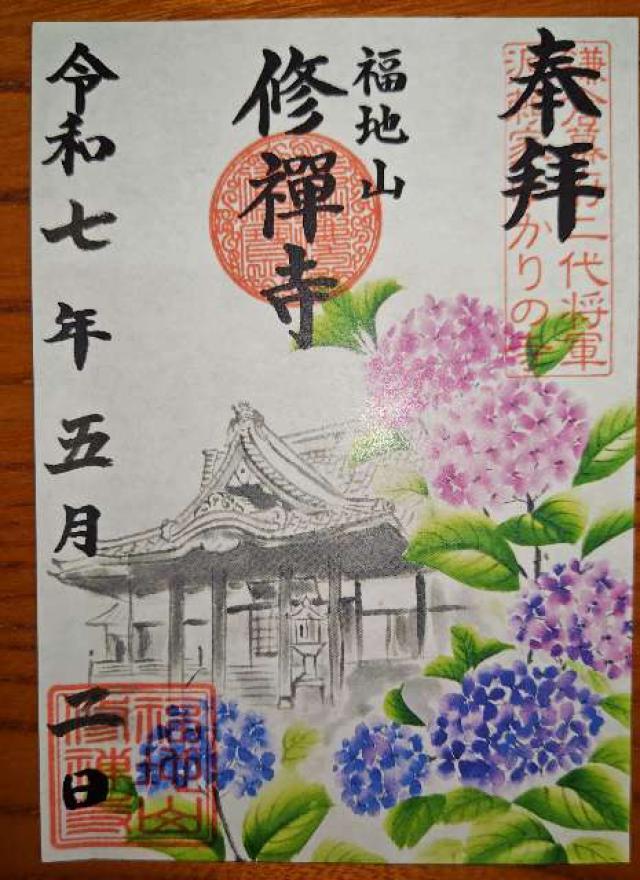 奉拝
鎌倉幕府二代将軍
源頼家ゆかりの寺
福地山
修禪寺
令和七年五月二日
福地山
修禅寺